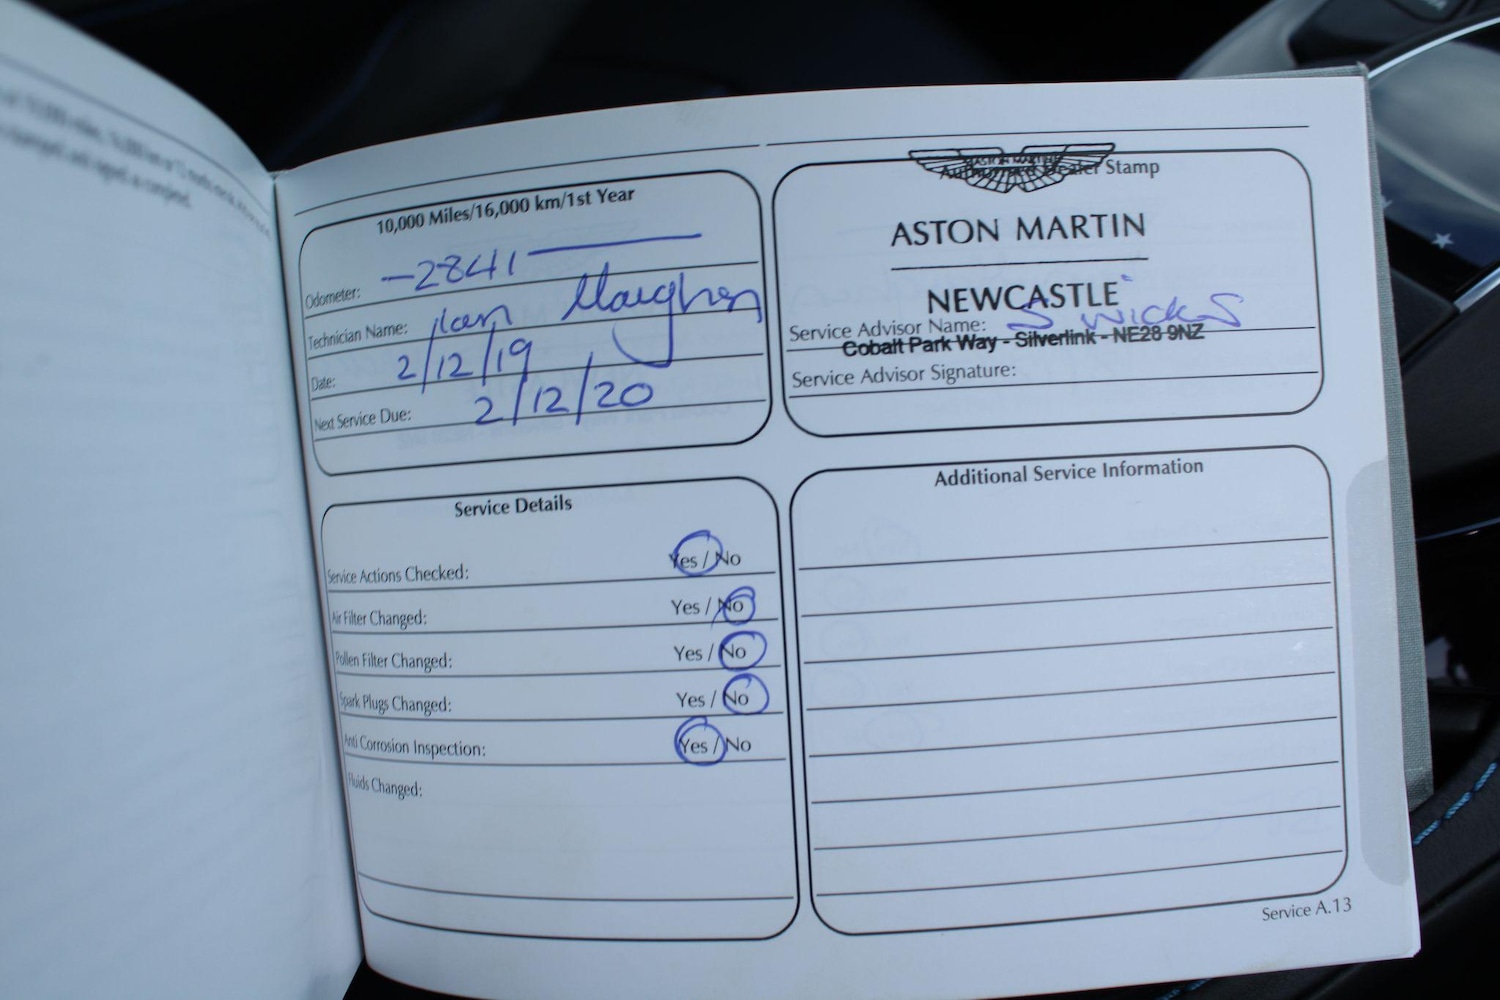 10,000 Miles/16,000 km/1st Year
Odometer: —2841—
Technician Name: Ian Maughan
Date: 2/12/19
Next Service Due: 2/12/20
Authorised Dealer Stamp
ASTON MARTIN
ASTON MARTIN
NEWCASTLE
Service Advisor Name: S Wicks
Cobalt Park Way - Silverlink - NE28 9NZ
Service Advisor Signature:
Service Details
Service Actions Checked: Yes / No
Air Filter Changed: Yes / No
Pollen Filter Changed: Yes / No
Spark Plugs Changed: Yes / No
Anti Corrosion Inspection: Yes / No
Fluids Changed:
Additional Service Information
Service A.13